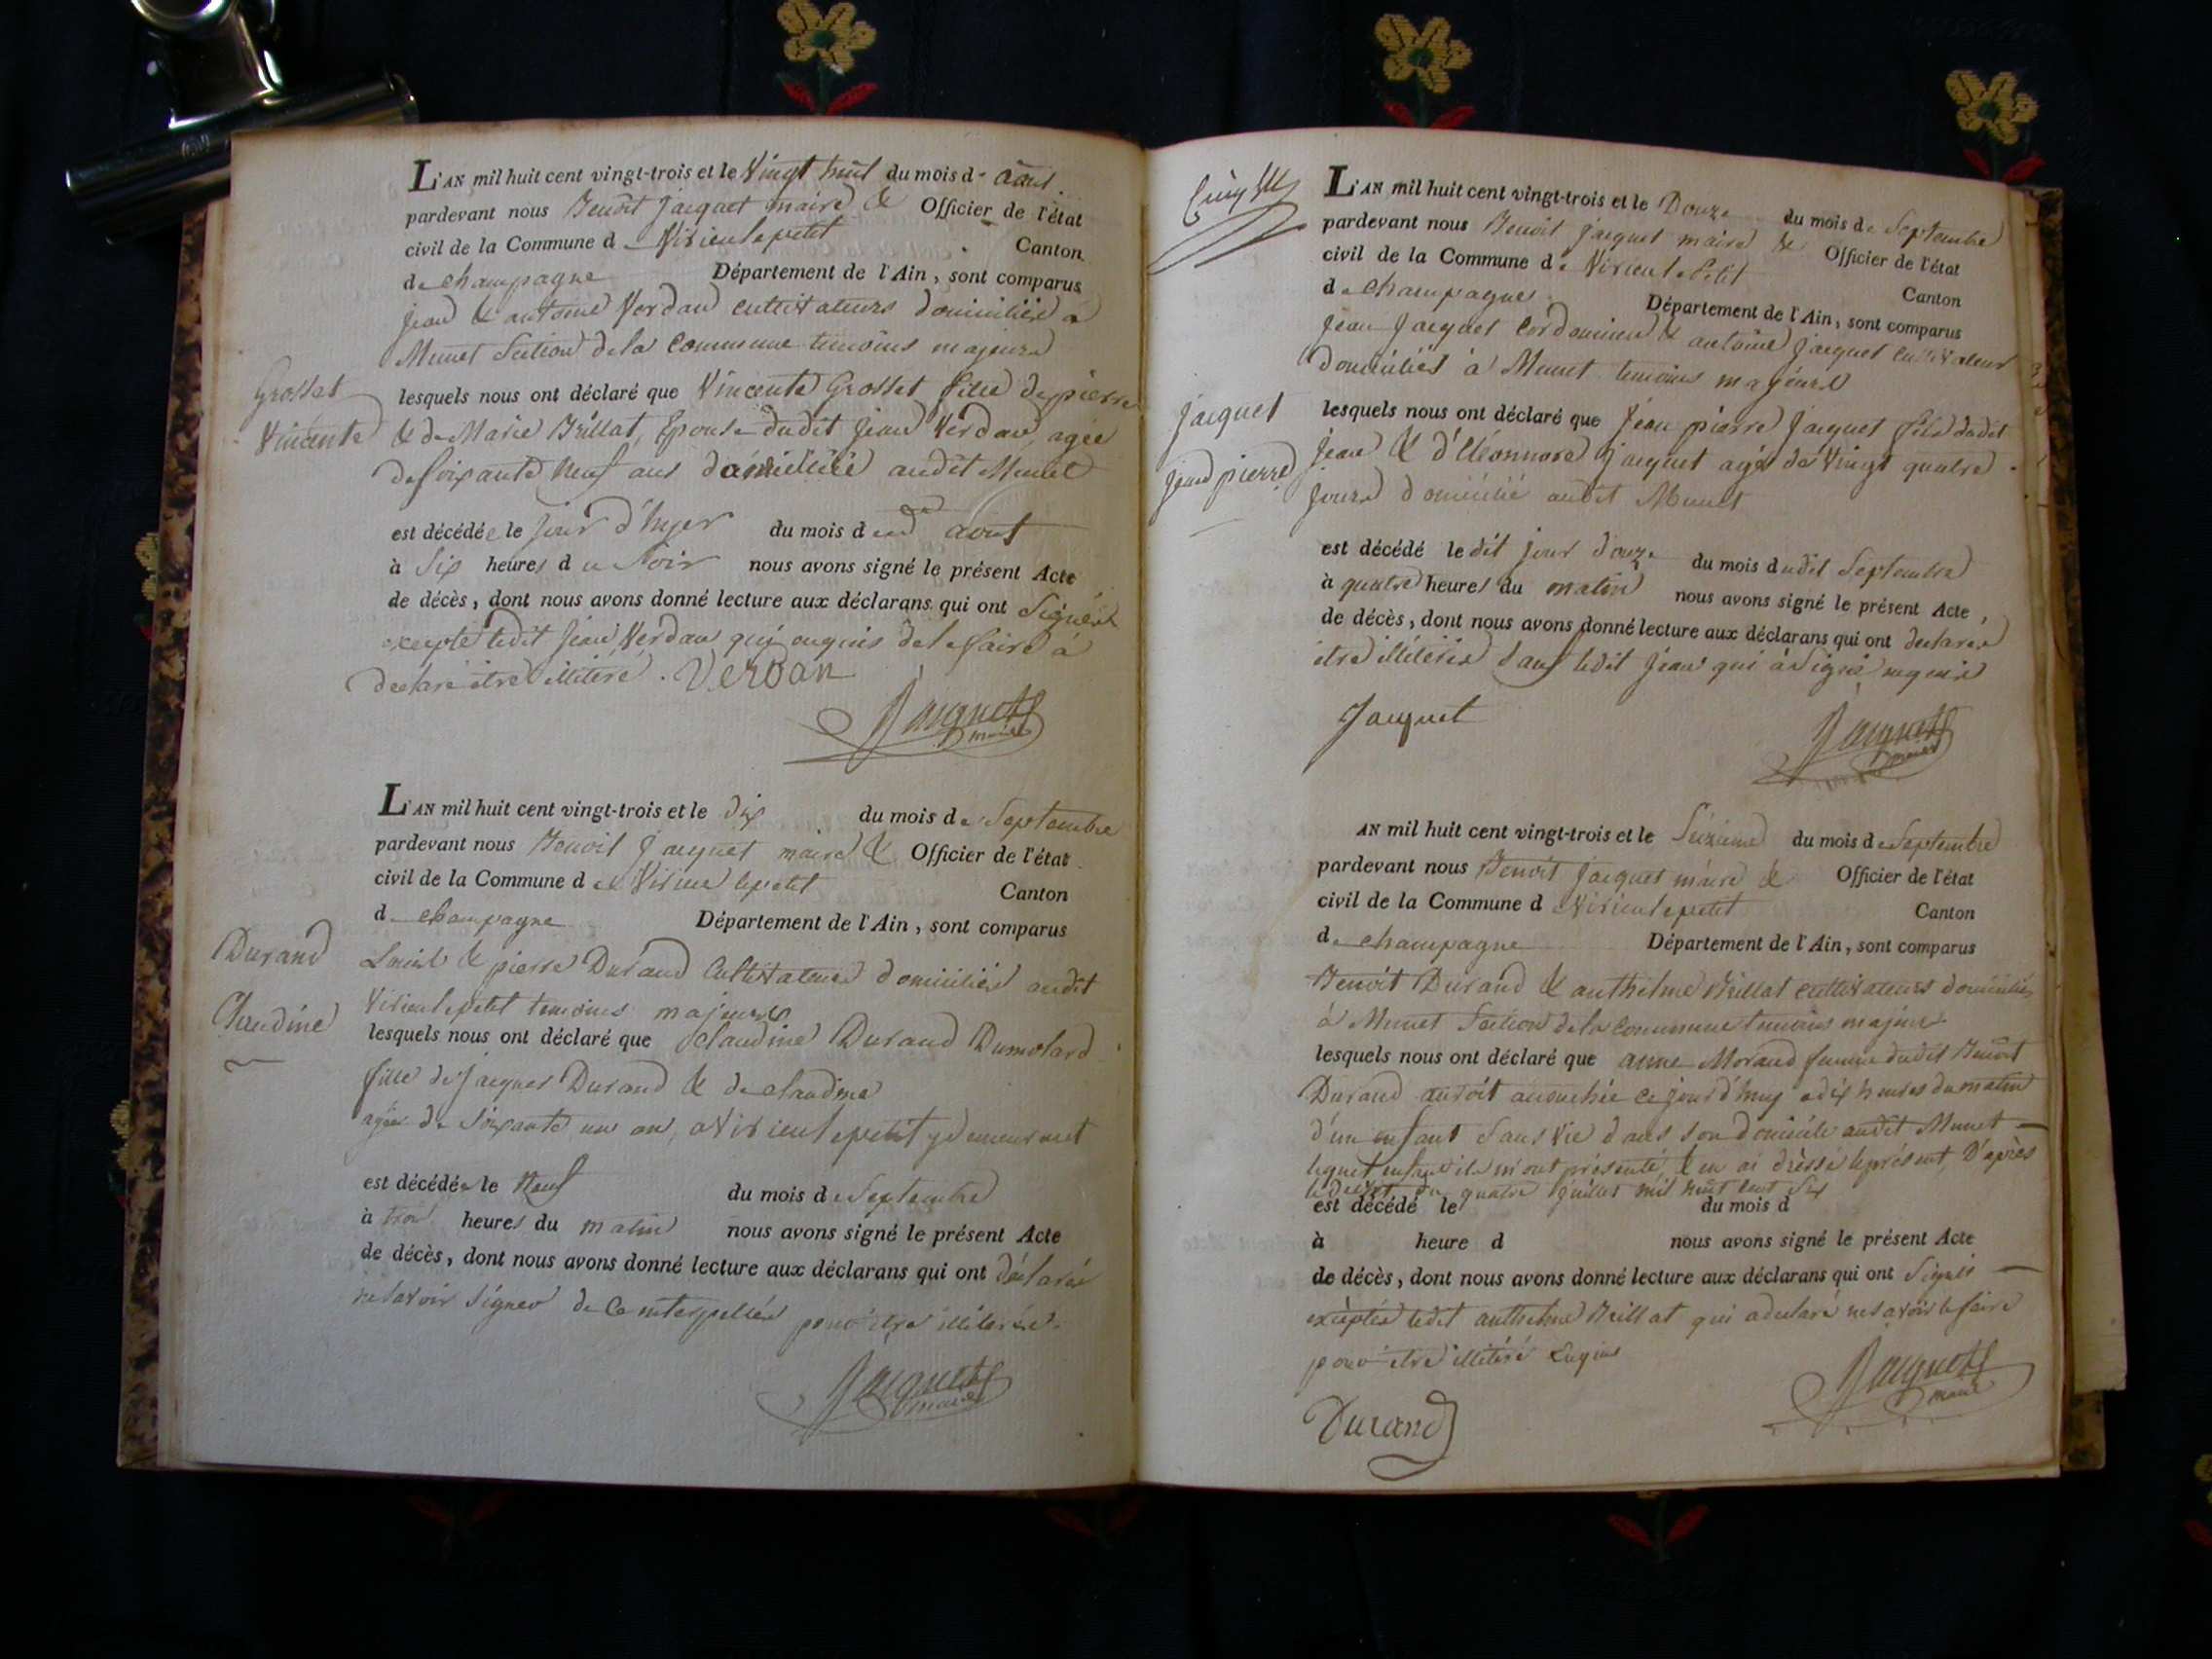 L'AN mil huit cent vingt-trois et le Vingt huit du mois d' août
pardevant nous Benoît Jacquet maire & Officier de l'état
civil de la Commune de Virieu le petit Canton
de champagne Département de l'Ain, sont comparus
Jean & antoine Verdan cultivateurs domiciliés à
Munet Section de la Commune temoins majeurs
Grosset
lesquels nous ont déclaré que Vincente Grosset fille de pierre
Vincente
& de Marie Brillat, Epouse dudit Jean Verdan, agée
de soixante neuf ans domiciliée audit Munet
est décédée le jour d'hyer du mois d août
à Six heures du Soir nous avons signé le présent Acte
de décès, dont nous avons donné lecture aux déclarans qui ont Signés
excepté ledit Jean Verdan qui de le faire à
declaré être illitéré. Verdan
Jacquet
maire
L'AN mil huit cent vingt-trois et le dix du mois de Septembre
pardevant nous Benoit Jacquet maire & Officier de l'état
civil de la Commune de Virieu lepetit Canton
de champagne Département de l'Ain, sont comparus
Durand
Louis & pierre Durand Cultivateurs domiciliés audit
Virieu lepetit temoins majeurs
Claudine
lesquels nous ont déclaré que claudine Durand Dumolard
fille de Jacques Durand & de claudine
agée de Soixante un an, a Virieu lepetit y demeurant
est décédée le Neuf du mois de Septembre
à trois heures du matin nous avons signé le présent Acte
de décès, dont nous avons donné lecture aux déclarans qui ont déclarés
ne savoir signer de ce interpellés pour être illiterés.
Jacquet
maire
L'AN mil huit cent vingt-trois et le Douze du mois de Septembre
pardevant nous Benoit Jacquet maire & Officier de l'état
civil de la Commune de Virieu le Petit Canton
de champagne Département de l'Ain, sont comparus
Jean Jacquet Cordonnier & antoine Jacquet cultivateur
domiciliés à Munet temoins majeurs
Jacquet
lesquels nous ont déclaré que Jean pierre Jacquet fils dudit
Jean & d'Eléonnore Jacquet agé de Vingt quatre
Jean pierre
jours domicilié audit Munet
est décédé le dit jour douze du mois dudit Septembre
à quatre heures du matin nous avons signé le présent Acte,
de décès, dont nous avons donné lecture aux déclarans qui ont declarés
etre illiterés sauf ledit Jean qui à Signé requis
Jacquet
Jacquet
maire
AN mil huit cent vingt-trois et le Seizieme du mois de Septembre
pardevant nous Benoit Jacquet maire & Officier de l'état
civil de la Commune de Virieu lepetit Canton
de champagne Département de l'Ain, sont comparus
Benoit Durand & anthelme Brillat cultivateurs domiciliés
à Munet Section de la Commune temoins majeurs
lesquels nous ont déclaré que anne Morand femme dudit Benoit
Durand auroit accouchée ce jour d'huy a dix heures du matin
d'un enfant sans vie dans son domicile audit Munet
lequel enfant ils m'ont présenté, & en ai dréssé leprésent, D'après
le décret du quatre juillet mil huit cent Six
est décédé le du mois d
à heure d nous avons signé le présent Acte
de décès, dont nous avons donné lecture aux déclarans qui ont Signés
excéptés ledit anthelme Brillat qui a declaré ne savoir le faire
pour être illitéré requis
Durand
Jacquet
maire